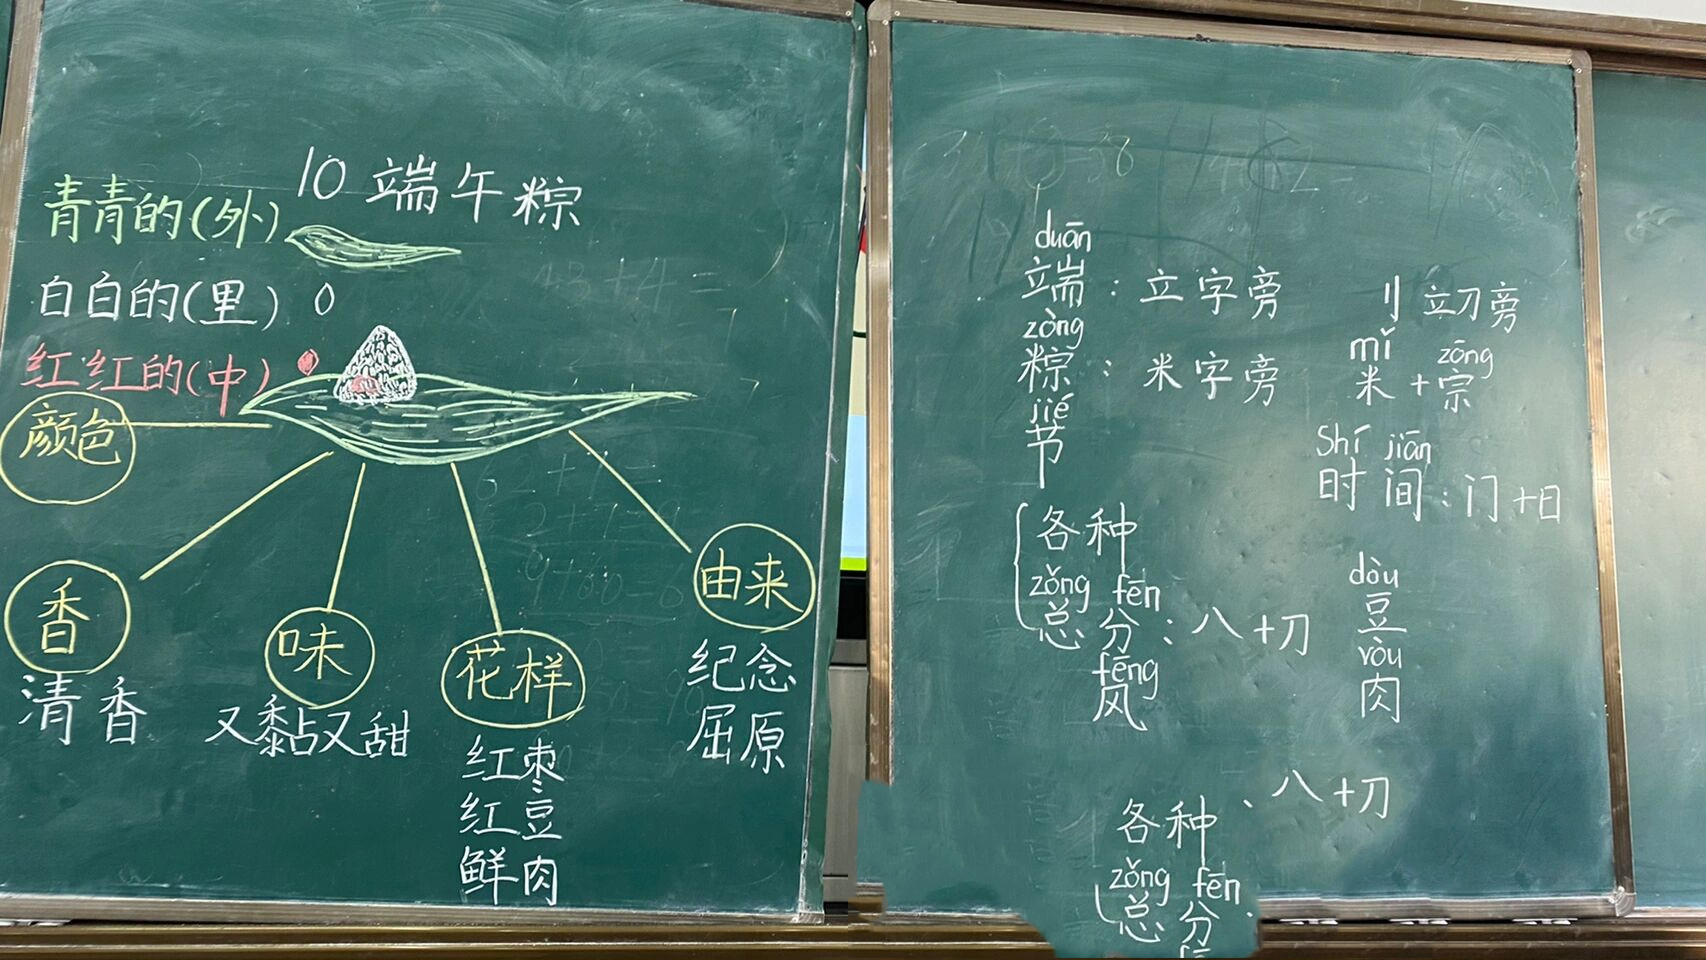 10 端午粽
青青的(外)
白白的(里)
红红的(中)
颜色
香
清香
味
又黏又甜
花样
红枣
红豆
鲜肉
由来
纪念
屈原
duān
端：立字旁
zòng
粽：米字旁
jié
节
各种
zǒng fēn
总 分：八+刀
fēng
风
刂 立刀旁
mǐ zōng
米+宗
Shí jiān
时间：门+日
dòu
豆
ròu
肉
各种、八+刀
zǒng fēn
总 分